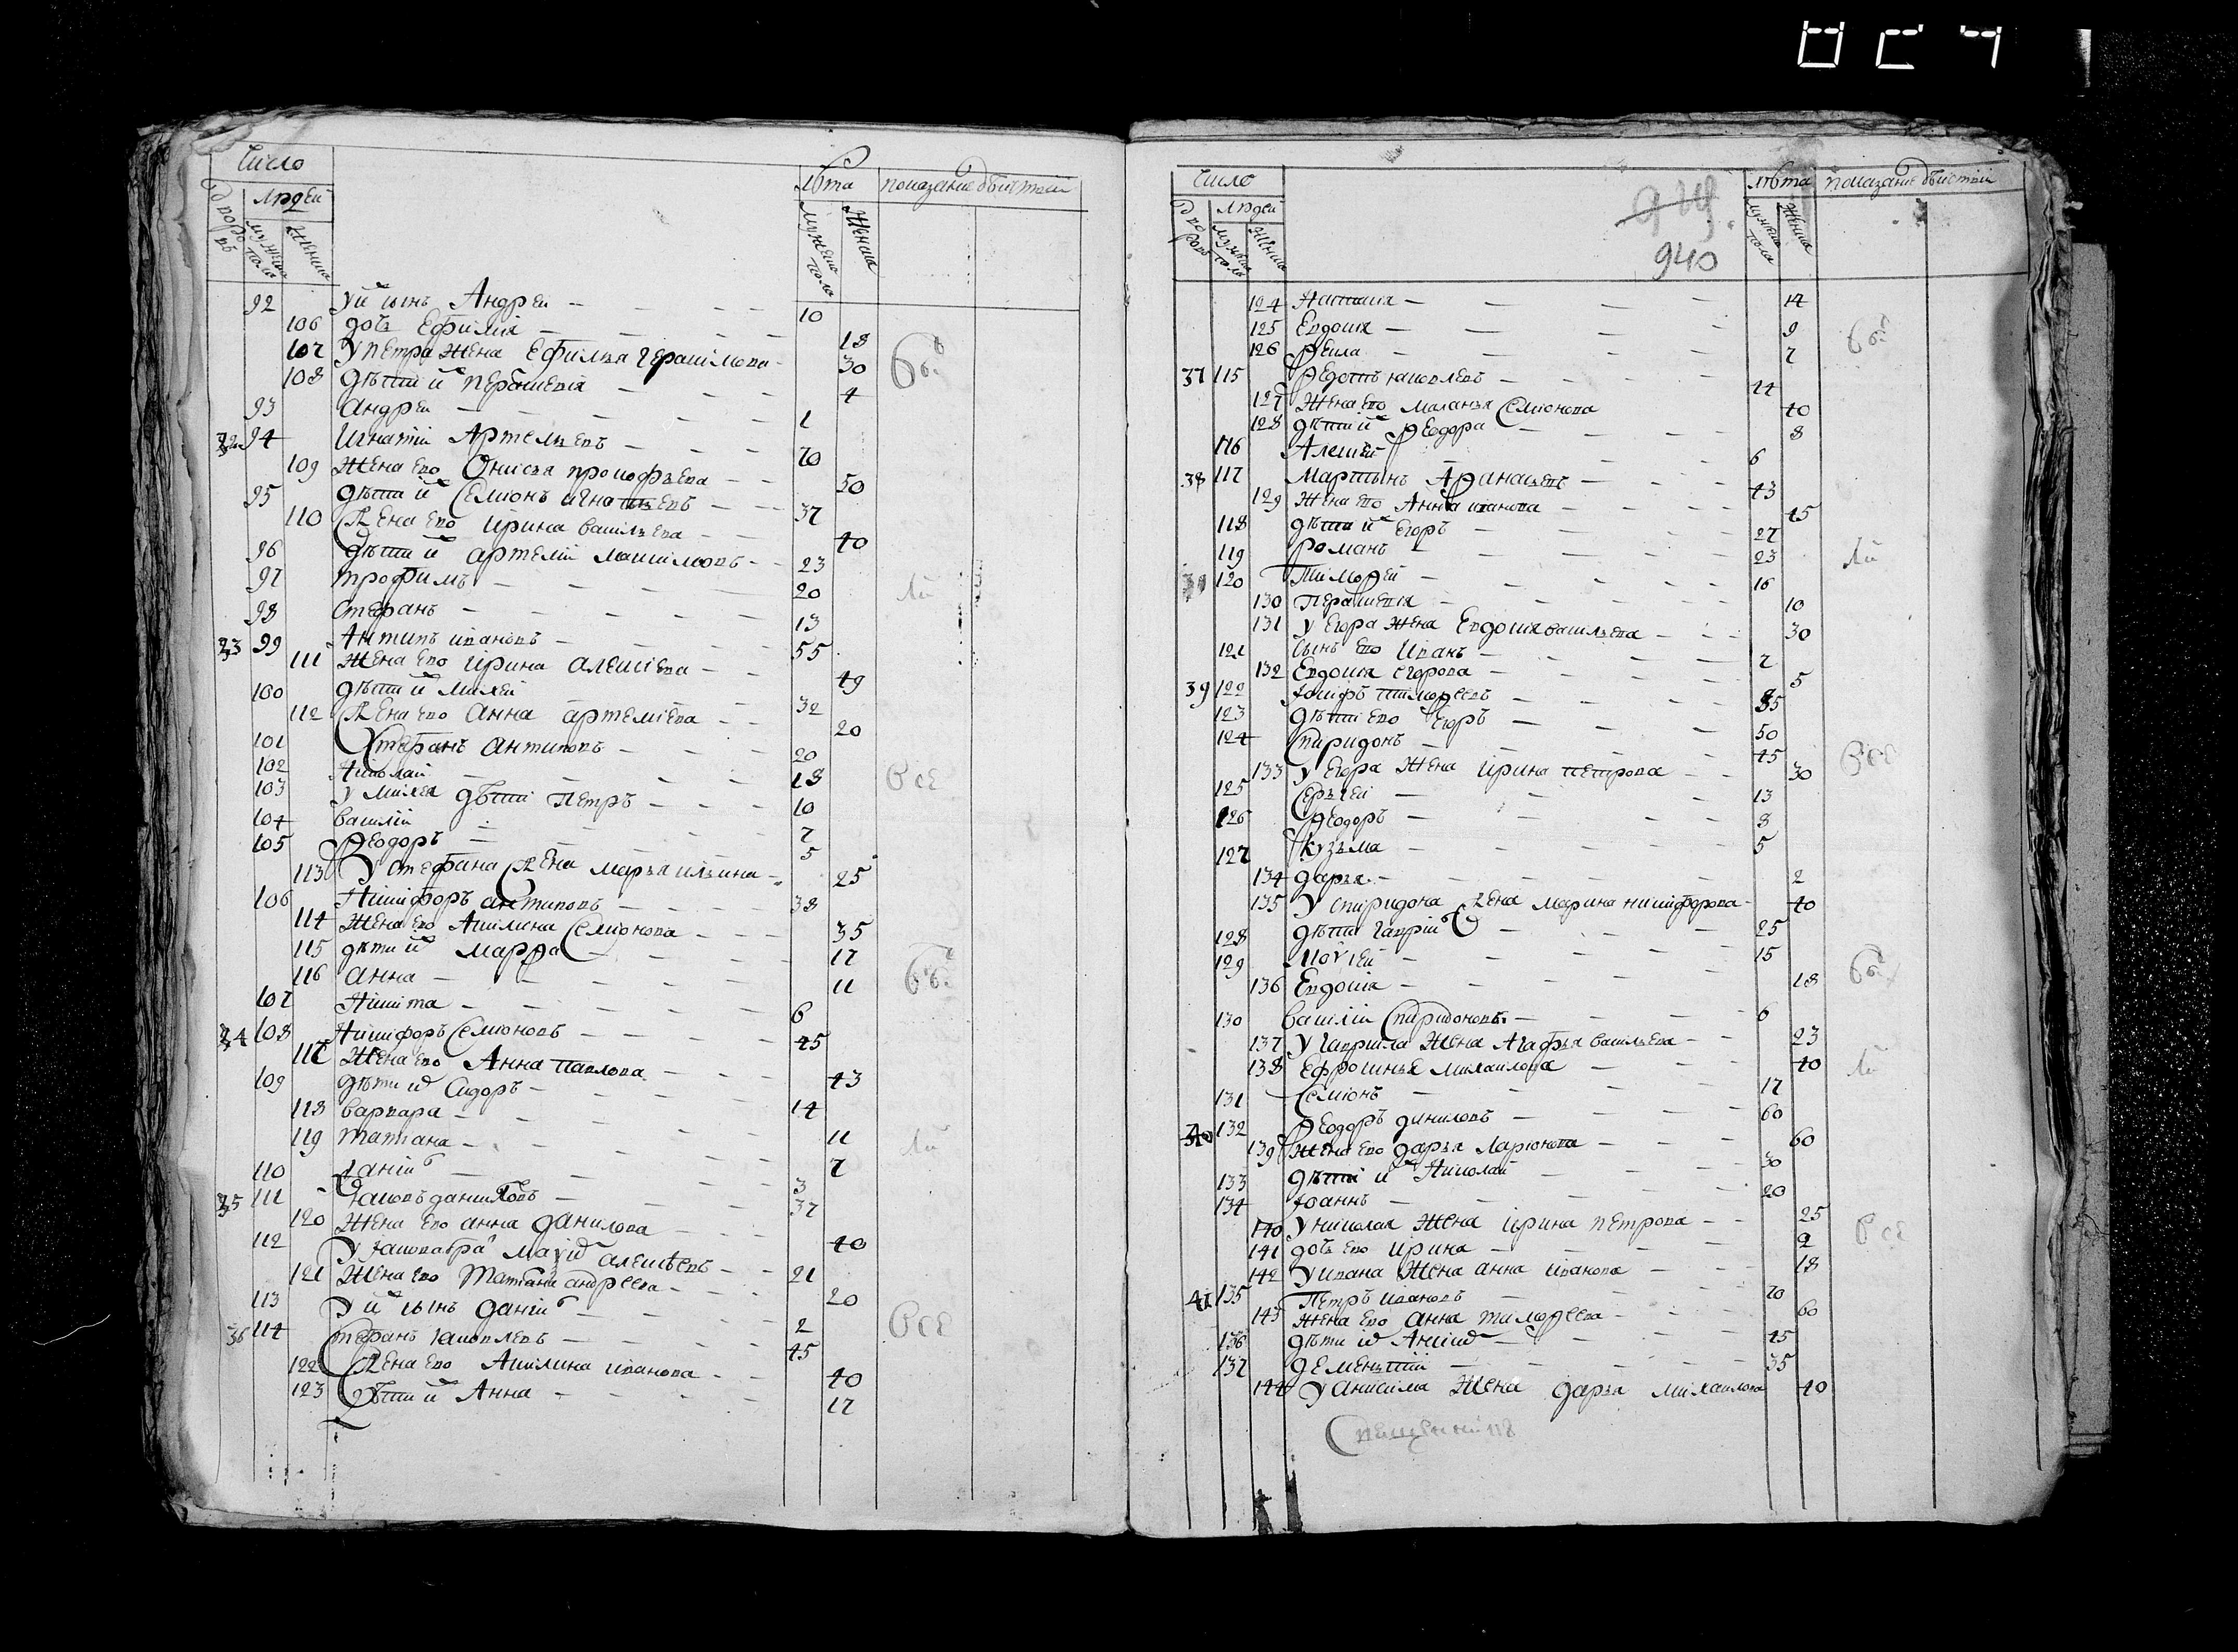 Число
Людей
лѣта показание дѣйстви
мужеска пола
женска
92 У ней сынъ Андреи 10
106 дочь Ефимия 18
107 У петра жена Ефимья герасимова 30
108 дѣти ихъперасковия 4
93 андреи 1
32 94 Игнатии Артемьевъ 70
109 жена ево Онисья прокофьева 50
95 дѣти ихъ Семионъ игнатьевъ 37
110 жена ево ирина васильева 40
96 дѣти ихъ артемии максимовъ 23
97 трофимъ 20
98 стефанъ 13
33 99 Антипъ ивановъ 55
111 жена ево ирина алексиева 49
100 дѣти ихъ михеи 32
112 жена ево анна артемиева 20
101 Стефанъ антиповъ 20
102 Николаи 18
103 у михея дѣти петръ 10
104 василии 7
105 Феодоръ 5
113 У стефана жена марья ильина 25
106 Никифоръ антиповъ 38
114 жена ево Акилина Семионова 35
115 дѣти ихъ марфа 17
116 анна 11
107 Никита 6
34 108 Никифоръ Семионовъ 45
117 жена ево Анна павлова 43
109 дѣти ихъ Сидоръ 14
118 варвара 11
119 татиана 7
110 данiилъ 3
35 111 Iаковъ даниловъ 37
120 жена ево анна данилова 40
112 У iакова братъ алексѣевъ 21
121 жена ево татиана андреева 20
113 У нихъ сынъ данiилъ 2
36 114 Стефанъ iаковлевъ 45
122 жена ево Акилина иванова 40
123 дѣти ихъ Анна 17
Число
Людей
лѣта показание дѣйстви
мужеска пола
женска
940
124 Настасия 14
125 Евдокия 9
126 Фекла 7
37 115 Федотъ iаковлевъ 44
127 жена ево маланья Семионова 40
128 дѣти ихъ Феодора 8
116 Алексеи 6
38 117 Мартынъ Афанасьевъ 43
129 жена ево Анна иванова 45
118 дѣти ихъ Егоръ 27
119 романъ 23
120 Тимофеи 16
130 перасковия 10
131 у Егора жена Евдокия васильева 30
121 сынъ ево Иванъ 7
132 Евдокия егорова 5
39 122 Iосифъ тимофеевъ 85
123 дѣти ево Егоръ 50
124 Спиридонъ 45
133 у Егора жена ирина петрова 30
125 Сергей 13
126 Феодоръ 8
127 Кузьма 5
134 дарья 2
135 У спиридона жена марина никифорова 40
128 дѣти гаврiилъ 25
129 Моисей 15
136 Евдокия 18
130 василии Спиридоновъ 6
137 У гаврила жена Агафья васильева 23
138 Ефросинья михаилова 40
131 Семионъ 17
40 132 Феодоръ даниловъ 60
139 жена ево дарья ларионова 60
133 дѣти ихъ Николаи 30
134 Iоаннъ 20
140 у николая жена ирина петрова 25
141 дочь ево ирина 2
142 У ивана жена анна иванова 18
41 135 Петръ ивановъ 70
143 жена ево анна тимофеева 60
136 дѣти ихъ Анисимъ 45
137 дементии 35
144 У анисима жена дарья михаилова 40
Священникъ